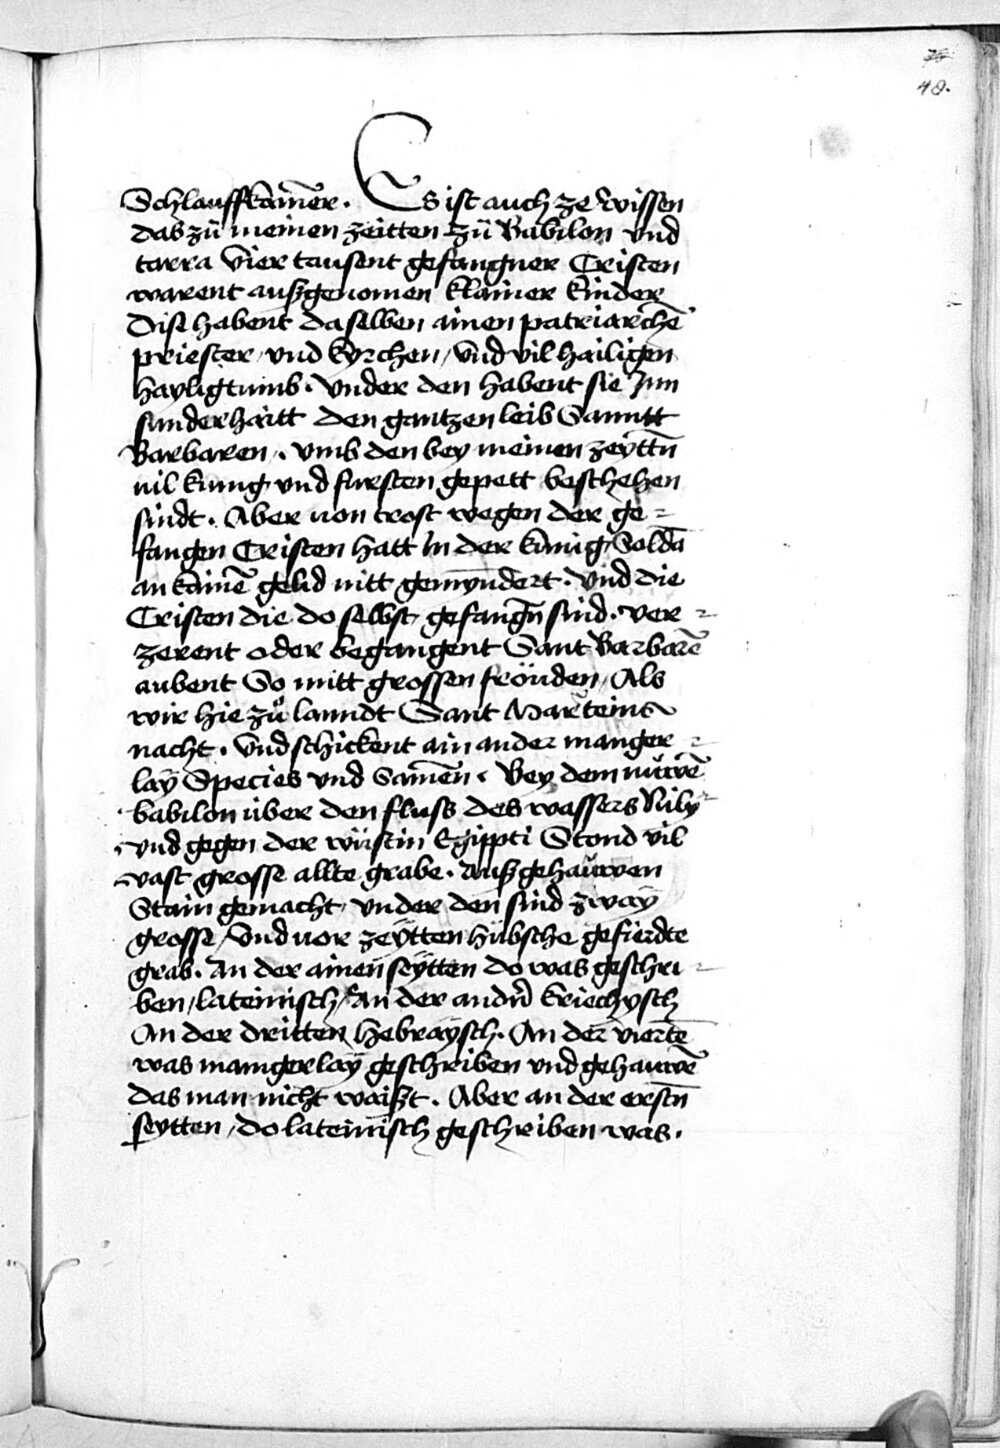 48.
Schlauffkam̄er . Es ist auch ze wissen
das zů meinen zeitten zů Babilon vnd
tarra vier tausent gefangner Cristen
warent auszgenomen klainer kinder
Dise habent daselben ainen patriarchē
priester / vnd kyrchen / vnd vil hailigen
hayligtumb . vnder den habent sie Jnn
sunderhaitt den gantzen leib Sanntt
Barbaren . vmb den bey meinen zeyttn̄
uil kunig vnd fursten gepett beschehen
sindt . Aber uon trost wegen der ge=
fangen Cristen hatt In der kunig Soldā
an kainē gelid nitt gemyndert . vnd die
Cristen die do selbst gefangn̄ sind . ver=
zerent oder begangent Sant Barbarē
aubent So mitt grossen fröuden / Als
wir hie zů lanndt Sant Marteins
nacht . vnd schickent ain ander manger=
laÿ Species vnd Samen̄ . Bey dem nuwē
babilon über den fluss des wassers Nily
vnd gegen der wüstin Egippti Stond vil
vast grosse allte grabe . Ausz gehauwen
Stain gemacht / vnder den sind zwaÿ
grosse / vnd uor zeÿtten hübsche gefierdte
grab . An der ainen seÿtten do was geschri=
ben / lateinisch / An der andn̄ kriechysch
An der dritten hebraÿsch . An der viertē
was mangerlaÿ geschriben vnd gehauwē
das man nicht waiszt . Aber an der erstn̄
seytten / do lateinisch geschriben was .